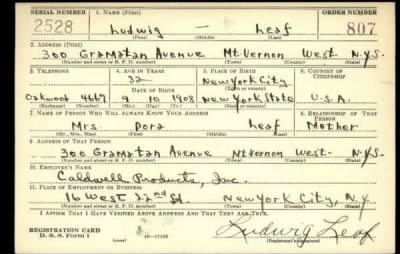 SERIAL NUMBER 1. NAME (Print) ORDER NUMBER
2528 Ludwig — Leaf 807
(First) (Middle) (Last)
2. ADDRESS (Print)
300 Gramatan Avenue Mt. Vernon West. N.Y.S.
(Number and street or R. F. D. number) (Town) (County) (State)
3. TELEPHONE 4. AGE IN YEARS 5. PLACE OF BIRTH 6. COUNTRY OF CITIZENSHIP
32 New York City
DATE OF BIRTH (Town or county)
Oakwood 4667 9 10 1908 New York State U.S.A.
(Exchange) (Number) (Mo.) (Day) (Yr.) (State or country)
7. NAME OF PERSON WHO WILL ALWAYS KNOW YOUR ADDRESS 8. RELATIONSHIP OF THAT PERSON
Mrs. Dora Leaf Mother
(Mr., Mrs., Miss) (First) (Middle) (Last)
9. ADDRESS OF THAT PERSON
300 Gramatan Avenue Mt Vernon West- N.Y.S.
(Number and street or R. F. D. number) (Town) (County) (State)
10. EMPLOYER'S NAME
Caldwell Products, Inc.
11. PLACE OF EMPLOYMENT OR BUSINESS
16 West 22nd St. New York City, N.Y.
(Number and street or R. F. D. number) (Town) (County) (State)
I AFFIRM THAT I HAVE VERIFIED ABOVE ANSWERS AND THAT THEY ARE TRUE.
REGISTRATION CARD
D. S. S. Form 1 (over) Ludwig Leaf
(Registrant's signature)